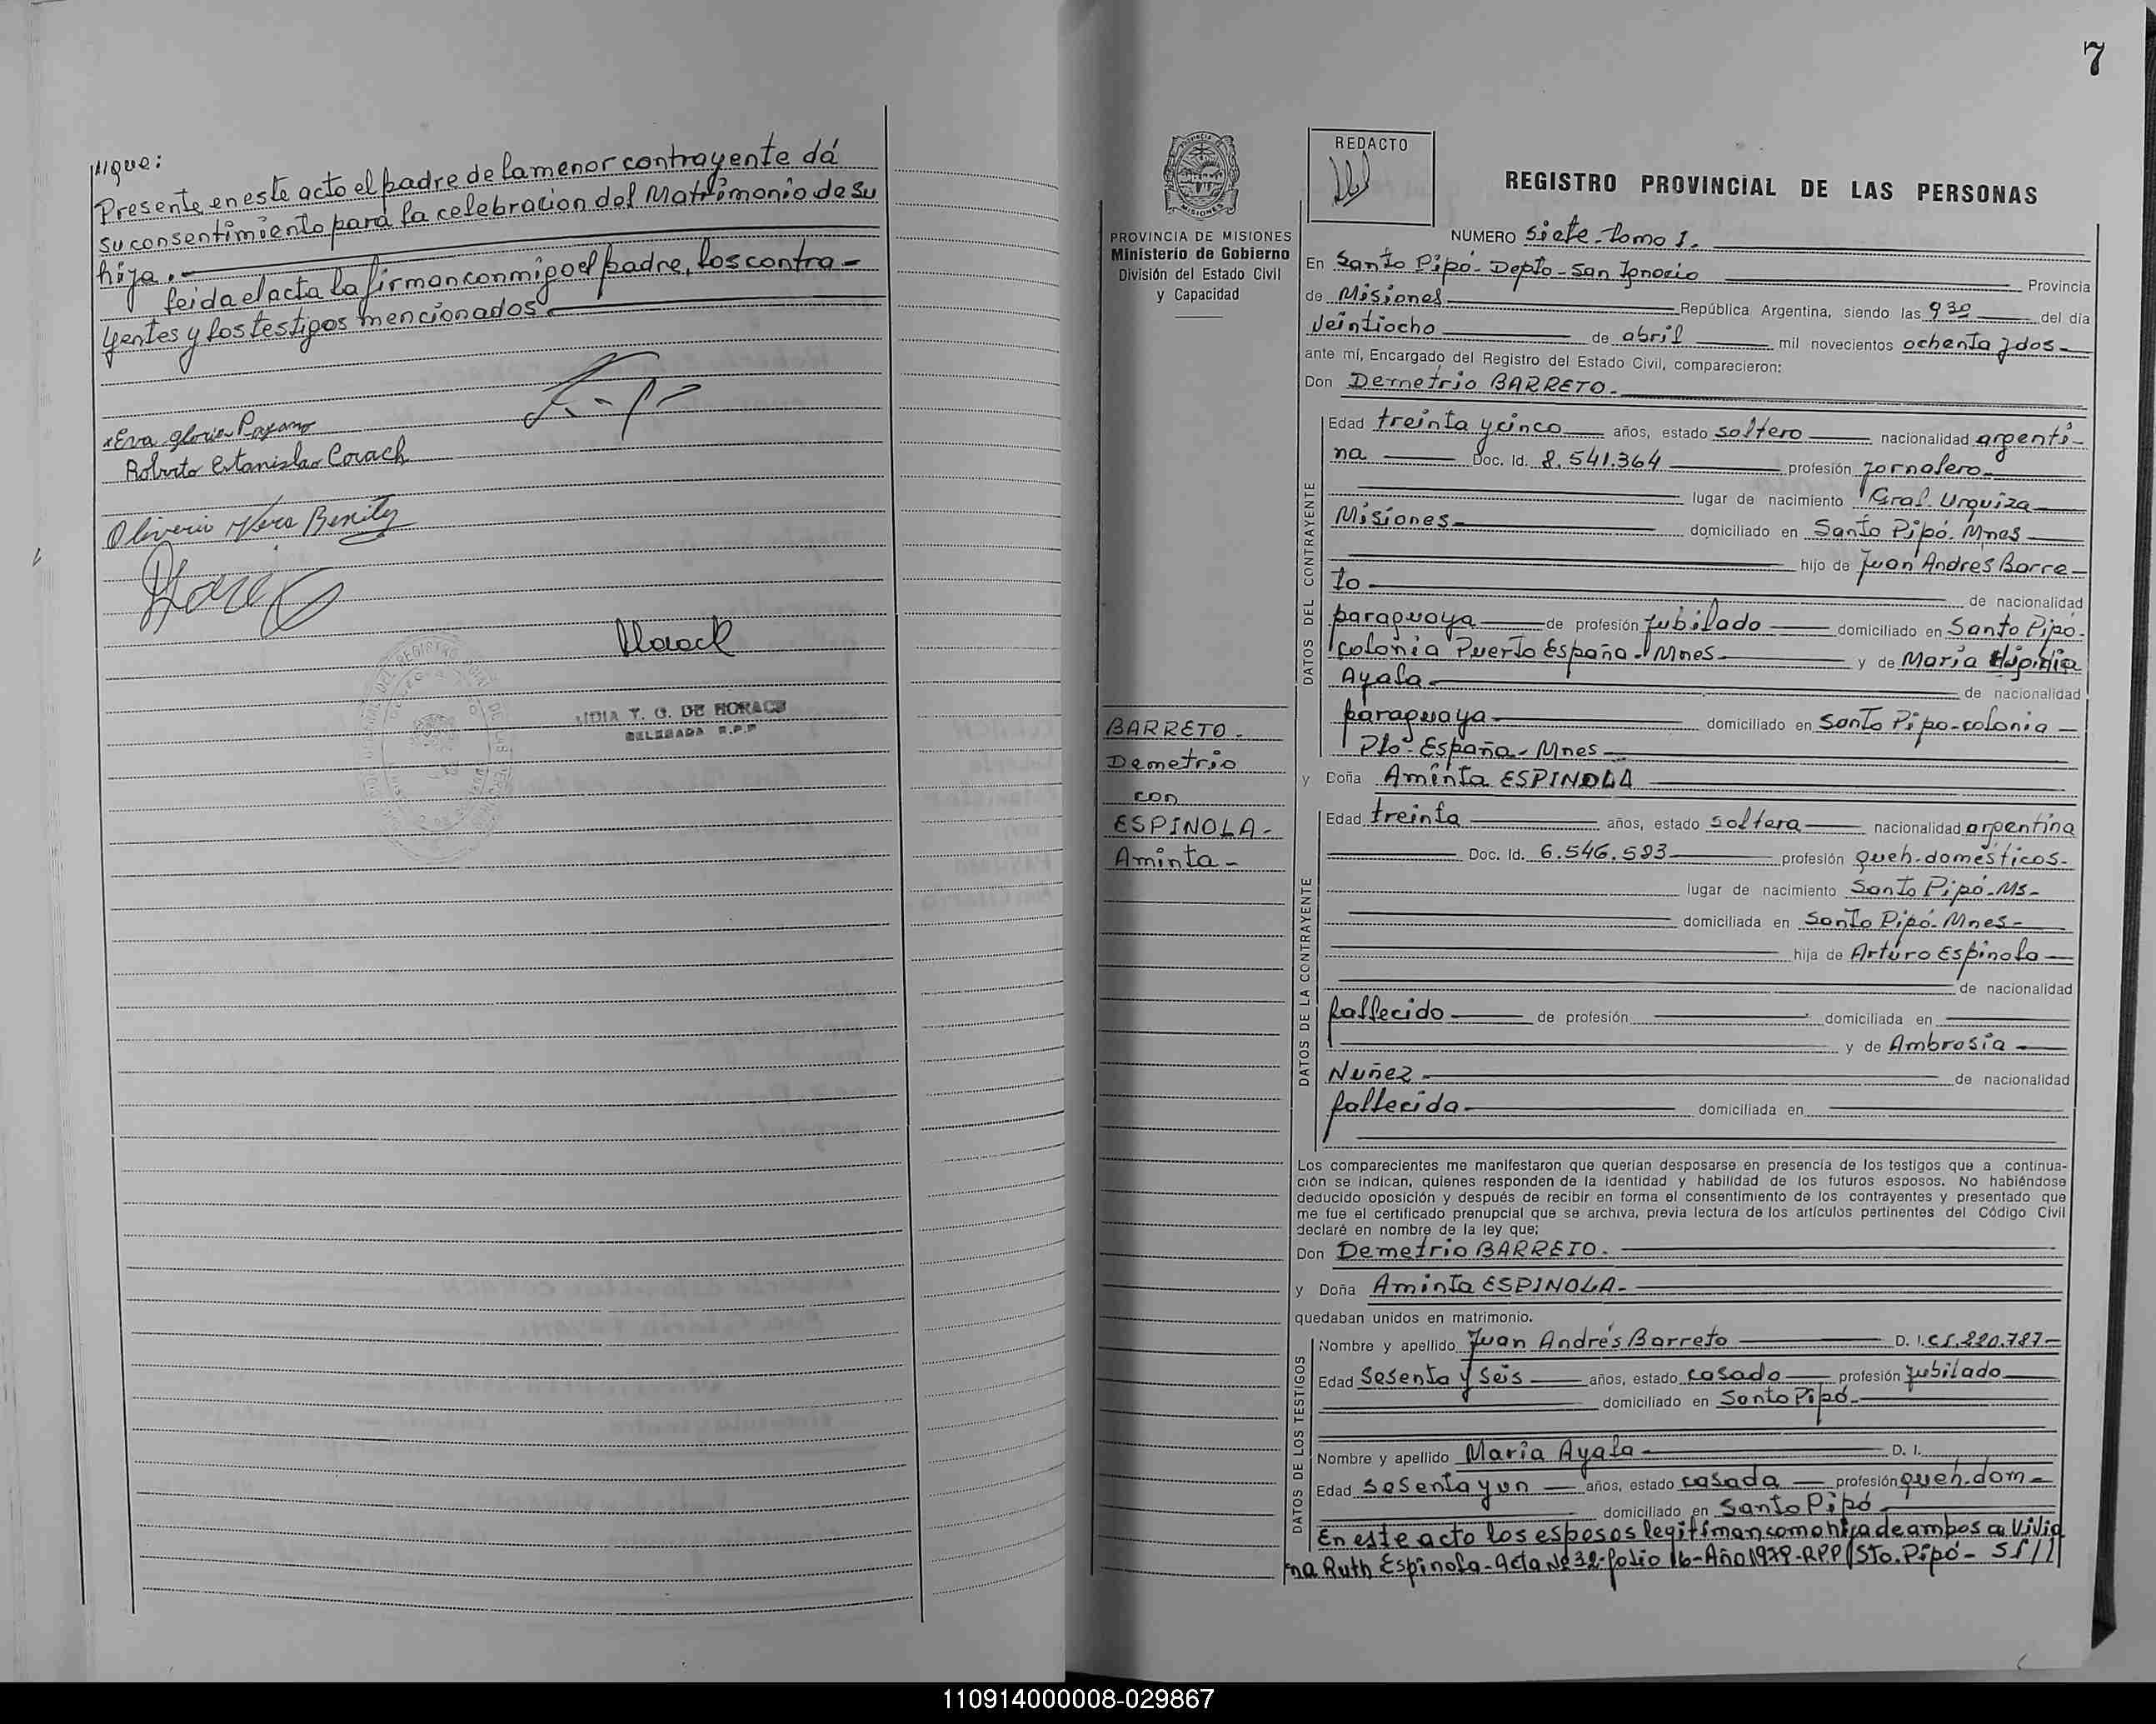 Presente en este acto el padre de la menor contrayente dá
su consentimiento para la celebracion del Matrimonio de su
hija.
leida el acta la firman conmigo el padre, los contra-
yentes y los testigos mencionados
Eva Gloria
Roberto Estanislao Corach
Oliverio
LIDIA T. G. DE HORACH
DELEGADA R.P.P
7
PROVINCIA DE MISIONES
Ministerio de Gobierno
División del Estado Civil
y Capacidad
BARRETO.
Demetrio
con
ESPINOLA-
Aminta-
REDACTO
REGISTRO PROVINCIAL DE LAS PERSONAS
NUMERO siete-tomo I.
En Santo Pipó-Depto-San Ignacio Provincia
de Misiones República Argentina, siendo las 9 30 del día
veintiocho de abril mil novecientos ochenta y dos
ante mí, Encargado del Registro del Estado Civil, comparecieron:
Don Demetrio BARRETO.
DATOS DEL CONTRAYENTE
Edad treinta y cinco años, estado soltero nacionalidad argenti-
na Doc. Id. 8.541.364 profesión jornalero
lugar de nacimiento Gral. Urquiza
Misiones domiciliado en Santo Pipó. Mnes
hijo de Juan Andres Barre-
to de nacionalidad
paraguaya de profesión jubilado domiciliado en Santo Pipó-
colonia Puerto España-Mnes y de María
Ayala de nacionalidad
paraguaya domiciliado en Santo Pipo-colonia
Pto-España-Mnes
y Doña Aminta ESPINOLA
DATOS DE LA CONTRAYENTE
Edad treinta años, estado soltera nacionalidad argentina
Doc. Id. 6.546.583 profesión queh-domésticos-
lugar de nacimiento Santo Pipó-Ms-
domiciliada en Santo Pipó-Mnes-
hija de Arturo Espinola
de nacionalidad
fallecido de profesión domiciliada en
y de Ambrosia
Nuñez de nacionalidad
fallecida domiciliada en
Los comparecientes me manifestaron que querían desposarse en presencia de los testigos que a continua-
ción se indican, quienes responden de la identidad y habilidad de los futuros esposos. No habiéndose
deducido oposición y después de recibir en forma el consentimiento de los contrayentes y presentado que
me fue el certificado prenupcial que se archiva, previa lectura de los artículos pertinentes del Código Civil
declaré en nombre de la ley que;
Don Demetrio BARRETO.
y Doña Aminta ESPINOLA-
quedaban unidos en matrimonio.
DATOS DE LOS TESTIGOS
Nombre y apellido Juan Andrés Barreto D. I. C.I. 220.787-
Edad Sesenta y seis años, estado casado profesión jubilado
domiciliado en Santo Pipó-
Nombre y apellido María Ayala D. I.
Edad sesenta y un años, estado casada profesión queh.dom-
domiciliado en Santo Pipó
En este acto los esposos legitiman como hija de ambos a Vivia
na Ruth Espinola-Acta Nº 32-folio 16-Año 1979-RPP Sto. Pipó-
110914000008-029867